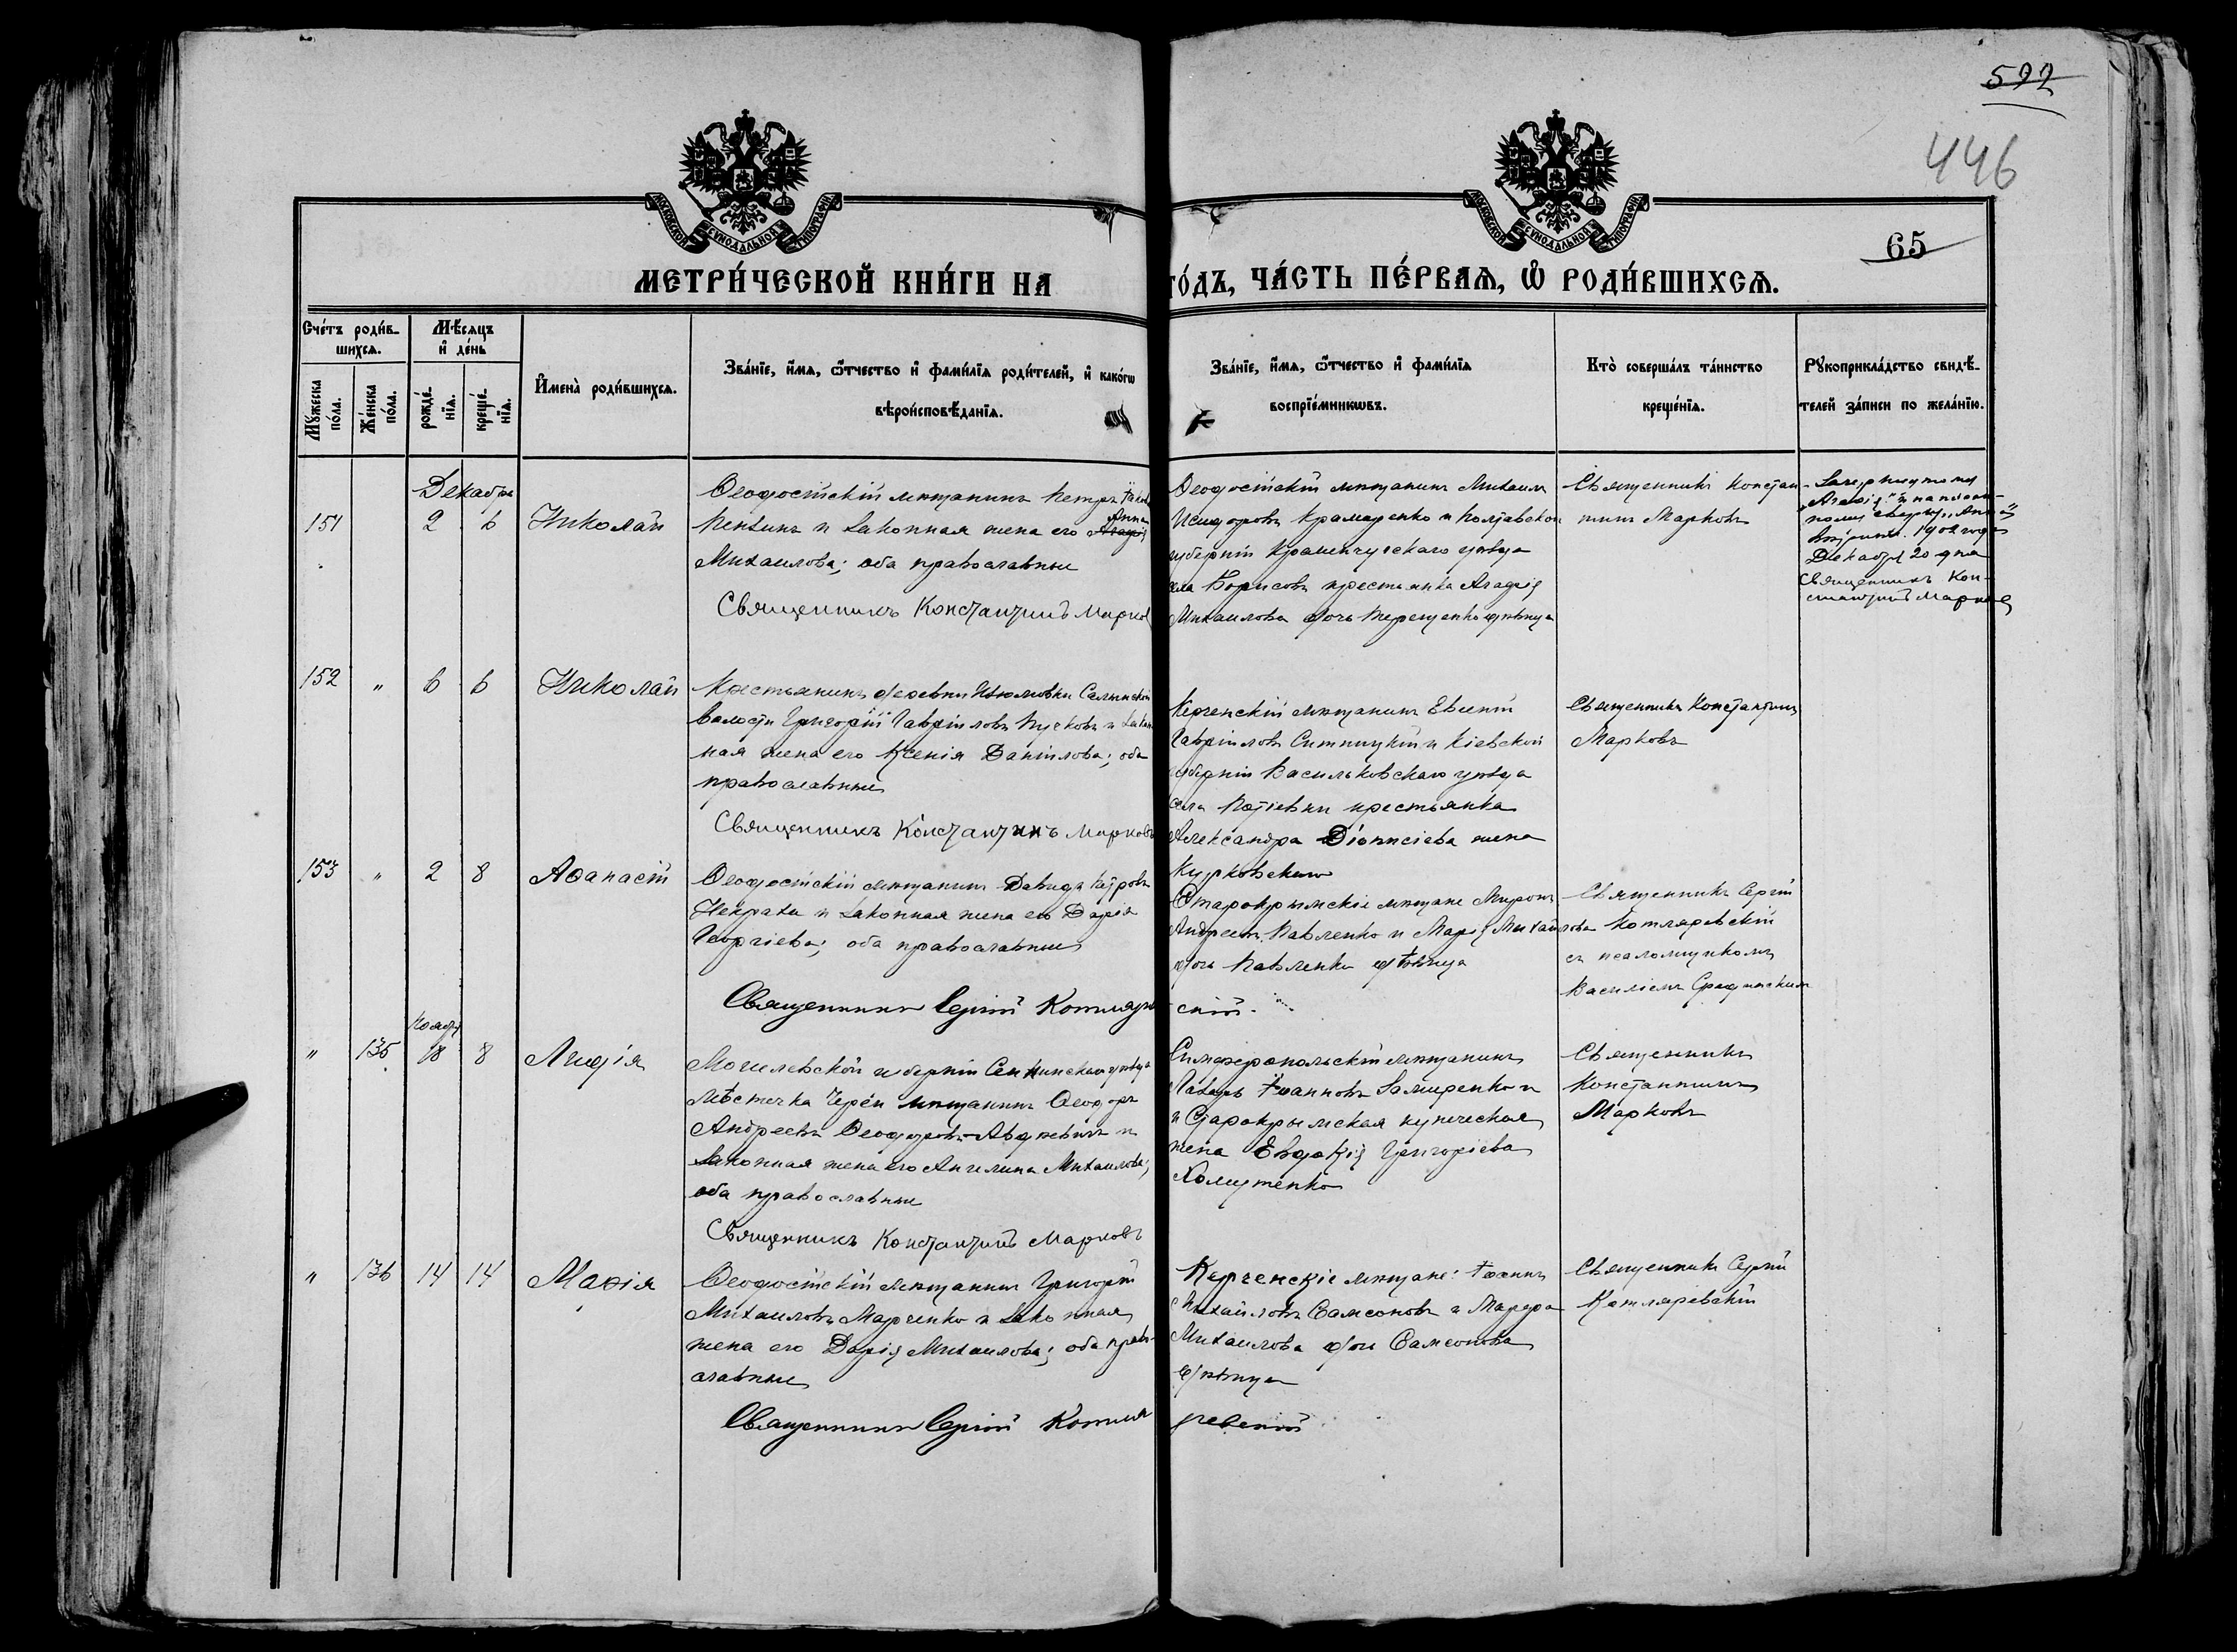 522
446
65
МОСКОВСКОЙ СѴНОДАЛЬНОЙ ТИПОГРАФІИ
МОСКОВСКОЙ СѴНОДАЛЬНОЙ ТИПОГРАФІИ
МЕТРИ́ЧЕСКОЙ КНИ́ГИ НА
ГО́ДЪ, ЧА́СТЬ ПЕ́РВАѦ, Ѡ РОДИ́ВШИХСѦ.
Сче́тъ роди́в-
шихсѧ.
Мѣ́сѧцъ
и де́нь
Мꙋ́жеска по́ла.
Же́нска по́ла.
рожде́-
нїѧ.
креще́-
нїѧ.
Имена̀ роди́вшихсѧ.
Зва́нїе, и́мѧ, ѻ́тчество и фами́лїѧ роди́телей, и како́гѡ
вѣроисповѣ́данїѧ.
Зва́нїе, и́мѧ, ѻ́тчество и фами́лїѧ
воспрїе́мникѡвъ.
Кто̀ соверша́лъ та́инство
креще́нїѧ.
Рꙋкоприкла́дство свидѣ́-
телей за́писи по жела́нїю.
Декабрь
151 2 6 Николай
Ѳеодосійскій мѣщанинъ Петръ
и законная жена его Анна
Михаилова; оба православные
Священникъ Константинъ Марков
Ѳеодосійскій мѣщанинъ Михаилъ
Исидоровъ Крамаренко и Полтавской
губерніи Кременчугскаго уѣзда
села Борисовъ крестьянка Агафія
Михаилова дочь Терещенко дѣвица
Священникъ Констан-
тинъ Марковъ
Зачеркнутому
„Агафія" и написан-
ному сверху „Анна"
вѣрить. 1902 года
Декабря 20 дня
Священникъ Кон-
стантинъ Марковъ
152 " 6 6 Николай
Крестьянинъ деревни Изюмовки Салынской
волости Григорій Гавріиловъ Пучковъ и закон
ная жена его Ксенія Даніилова; оба
православные
Священникъ Константинъ Марковъ
Керченскій мѣщанинъ Евгеній
Гавріиловъ Ситницкій и Кіевской
губерніи Васильковскаго уѣзда
села Потіевки крестьянка
Александра Діонисіева жена
Курковскаго
Священникъ Константинъ
Марковъ
153 " 2 8 Аѳанасій
Ѳеодосійскій мѣщанинъ Давидъ Петровъ
Некраха и законная жена его Дарія
Георгіева; оба православные
Священникъ Сергій Котляревскій.
Старокрымскіе мѣщане Миронъ
Андреевъ Павленко и Марія Михайлова
дочь Павленко дѣвица
Священникъ Сергій
Котляревскій
съ псаломщикомъ
Василіемъ
Ноября
" 135 18 8 Лидія
Могилевской губерніи Сеннинскаго уѣзда
мѣстечка Черéи мѣщанинъ Ѳеодоръ
Андреевъ Ѳеодоровъ-Авдѣевичъ и
законная жена его Ангелина Михаилова;
оба православные
Священникъ Константинъ Марковъ
Симферопольскій мѣщанинъ
Павелъ Іоанновъ и
и Старокрымская купеческая
жена Евдокія Григоріева
Хомутенко
Священникъ
Константинъ
Марковъ
" 136 14 14 Марія
Ѳеодосійскій мѣщанинъ Григорій
Михаиловъ Марченко и законная
жена его Дарія Михаилова; оба право-
славные
Священникъ Сергій Котляревскій
Керченскіе мѣщане: Іоаннъ
Михаиловъ Самсоновъ и Марѳа
Михаилова дочь Самсонова
дѣвица
Священникъ Сергій
Котляревскій